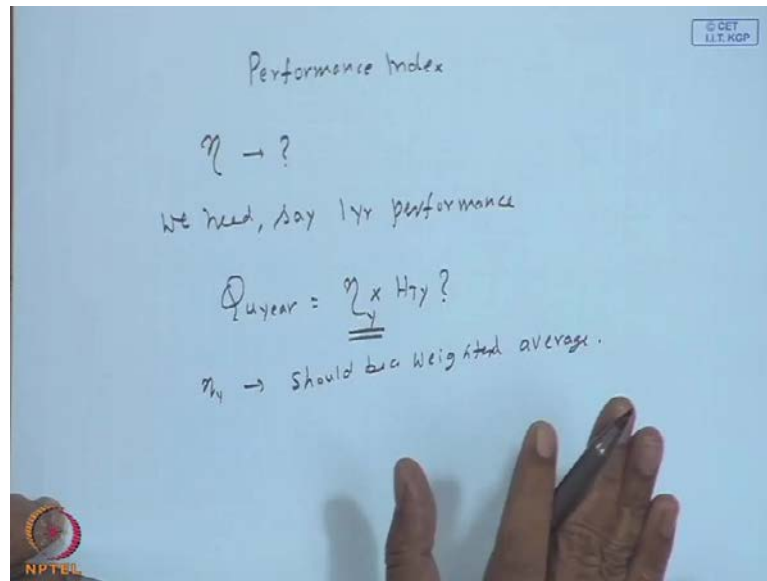 © CET
I.I.T. KGP
Performance Index
η → ?
We need, say 1yr performance
Qu year = ηy × HTy ?
ηy → Should be a weighted average.
NPTEL